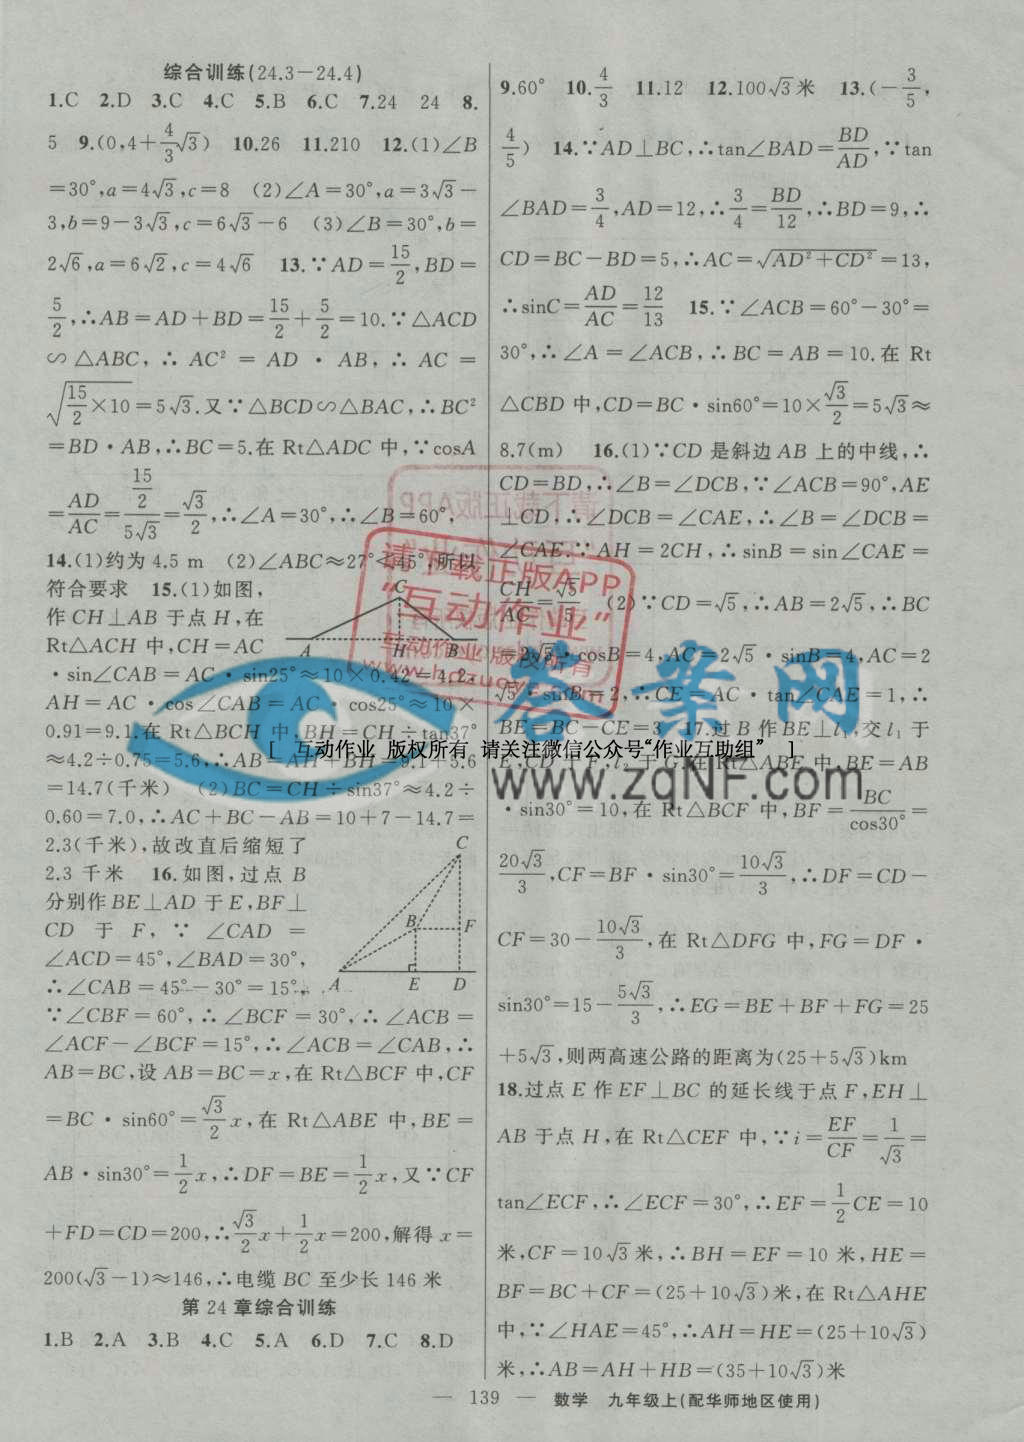 综合训练(24.3－24.4)
1.C 2.D 3.C 4.C 5.B 6.C 7.24 24 8.
5 9.(0,4+4/3√3) 10.26 11.210 12.(1)∠B
=30°,a=4√3,c=8 (2)∠A=30°,a=3√3-
3,b=9-3√3,c=6√3-6 (3)∠B=30°,b=
2√6,a=6√2,c=4√6 13.∵AD=15/2,BD=
5/2,∴AB=AD+BD=15/2+5/2=10.∵△ACD
∽△ABC,∴AC²=AD·AB,∴AC=
√(15/2×10)=5√3.又∵△BCD∽△BAC,∴BC²
=BD·AB,∴BC=5.在Rt△ADC中,∵cosA
=AD/AC=(15/2)/(5√3)=√3/2,∴∠A=30°,∴∠B=60°,
14.(1)约为4.5 m (2)∠ABC≈27°<45°,所以
符合要求 15.(1)如图,
作CH⊥AB于点H,在
Rt△ACH中,CH=AC
·sin∠CAB=AC·sin25°≈10×0.42=4.2,
AH=AC·cos∠CAB=AC·cos25°≈10×
0.91=9.1.在Rt△BCH中,BH=CH÷tan37°
≈4.2÷0.75=5.6,∴AB=AH+BH=9.1+5.6
=14.7(千米) (2)BC=CH÷sin37°≈4.2÷
0.60=7.0,∴AC+BC-AB=10+7-14.7=
2.3(千米),故改直后缩短了
2.3千米 16.如图,过点B
分别作BE⊥AD于E,BF⊥
CD于F,∵∠CAD=
∠ACD=45°,∠BAD=30°,
∴∠CAB=45°-30°=15°,
∵∠CBF=60°,∴∠BCF=30°,∴∠ACB=
∠ACF-∠BCF=15°,∴∠ACB=∠CAB,∴
AB=BC,设AB=BC=x,在Rt△BCF中,CF
=BC·sin60°=√3/2x,在Rt△ABE中,BE=
AB·sin30°=1/2x,∴DF=BE=1/2x,又∵CF
+FD=CD=200,∴√3/2x+1/2x=200,解得x=
200(√3-1)≈146,∴电缆BC至少长146米
第24章综合训练
1.B 2.A 3.B 4.C 5.A 6.D 7.C 8.D
C
A H B
C
B F
A E D
9.60° 10.4/3 11.12 12.100√3米 13.(-3/5,
4/5) 14.∵AD⊥BC,∴tan∠BAD=BD/AD,∵tan
∠BAD=3/4,AD=12,∴3/4=BD/12,∴BD=9,∴
CD=BC-BD=5,∴AC=√(AD²+CD²)=13,
∴sinC=AD/AC=12/13 15.∵∠ACB=60°-30°=
30°,∴∠A=∠ACB,∴BC=AB=10.在Rt
△CBD中,CD=BC·sin60°=10×√3/2=5√3≈
8.7(m) 16.(1)∵CD是斜边AB上的中线,∴
CD=BD,∴∠B=∠DCB,∵∠ACB=90°,AE
⊥CD,∴∠DCB=∠CAE,∴∠B=∠DCB=
∠CAE.∵AH=2CH,∴sinB=sin∠CAE=
CH/AC=√5/5 (2)∵CD=√5,∴AB=2√5,∴BC
=2√5·cosB=4,AC=2√5·sinB=4,AC=2
√5·sinB=2,∴CE=AC·tan∠CAE=1,∴
BE=BC-CE=3 17.过B作BE⊥l₁,交l₁于
E,CD于F,l₂于G,在Rt△ABE中,BE=AB
·sin30°=10,在Rt△BCF中,BF=BC/cos30°=
20√3/3,CF=BF·sin30°=10√3/3,∴DF=CD-
CF=30-10√3/3,在Rt△DFG中,FG=DF·
sin30°=15-5√3/3,∴EG=BE+BF+FG=25
+5√3,则两高速公路的距离为(25+5√3)km
18.过点E作EF⊥BC的延长线于点F,EH⊥
AB于点H,在Rt△CEF中,∵i=EF/CF=1/√3=
tan∠ECF,∴∠ECF=30°,∴EF=1/2CE=10
米,CF=10√3米,∴BH=EF=10米,HE=
BF=BC+CF=(25+10√3)米,在Rt△AHE
中,∵∠HAE=45°,∴AH=HE=(25+10√3)
米,∴AB=AH+HB=(35+10√3)米
请下载正版APP
“互动作业”
互动作业 版权所有
[ 互动作业 版权所有 请关注微信公众号“作业互助组” ]
答案网
www.zqNF.com
— 139 — 数学 九年级上(配华师地区使用)